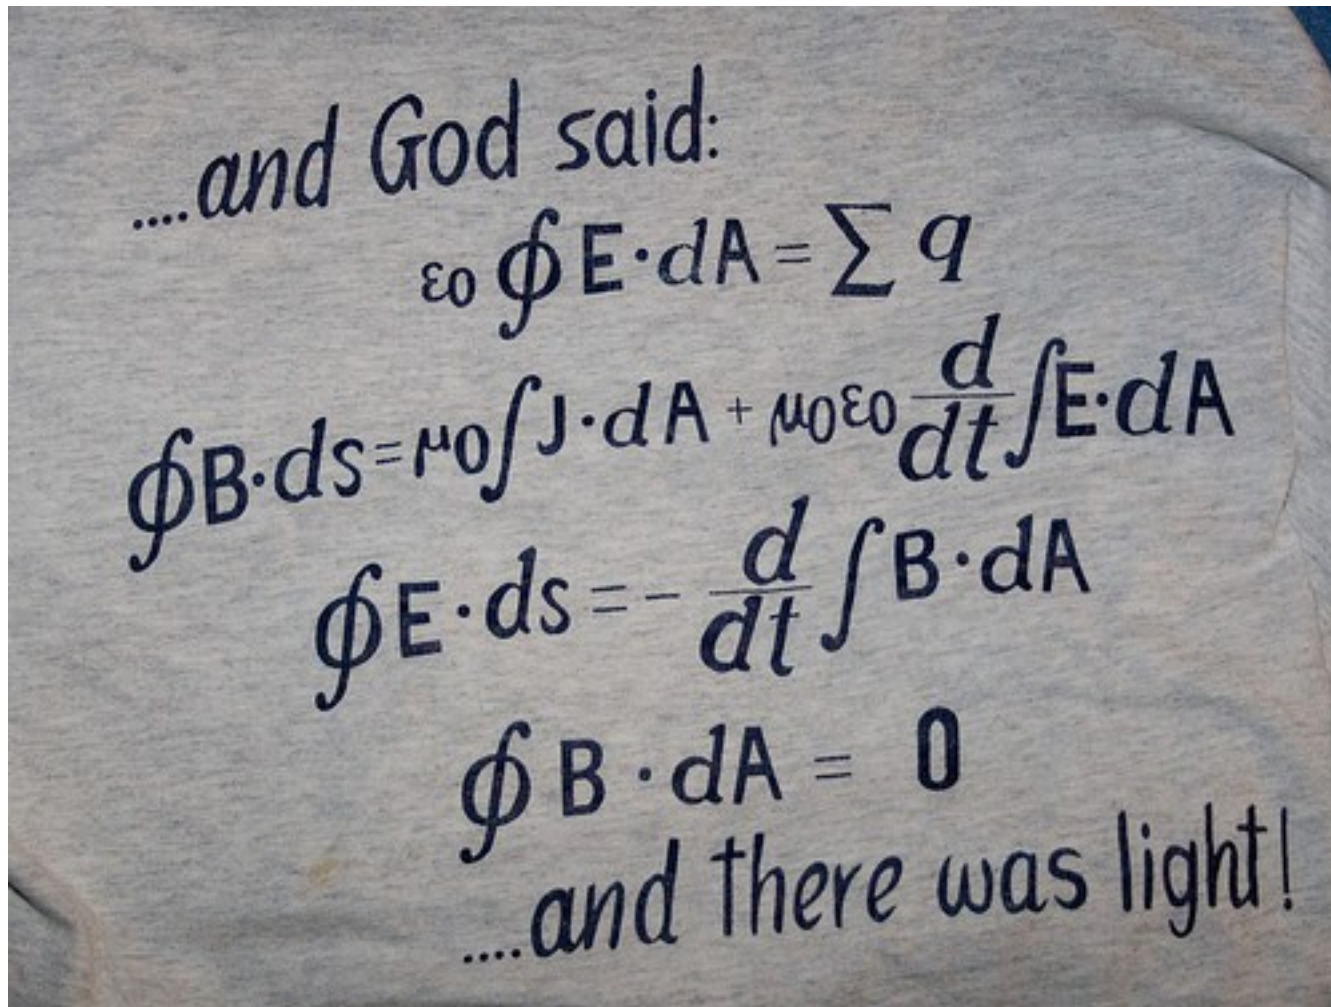 ....and God said:
εo ∮ E·dA = Σ q
∮B·ds = μo∫J·dA + μoεo d/dt ∫E·dA
∮E·ds = - d/dt ∫B·dA
∮ B·dA = 0
....and there was light!